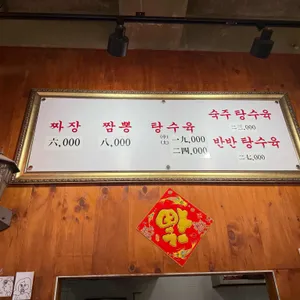 짜장
六,000
짬뽕
八,000
탕수육
(中) 一九,000
(大) 二四,000
숙주 탕수육
二三,000
반반 탕수육
二七,000
福